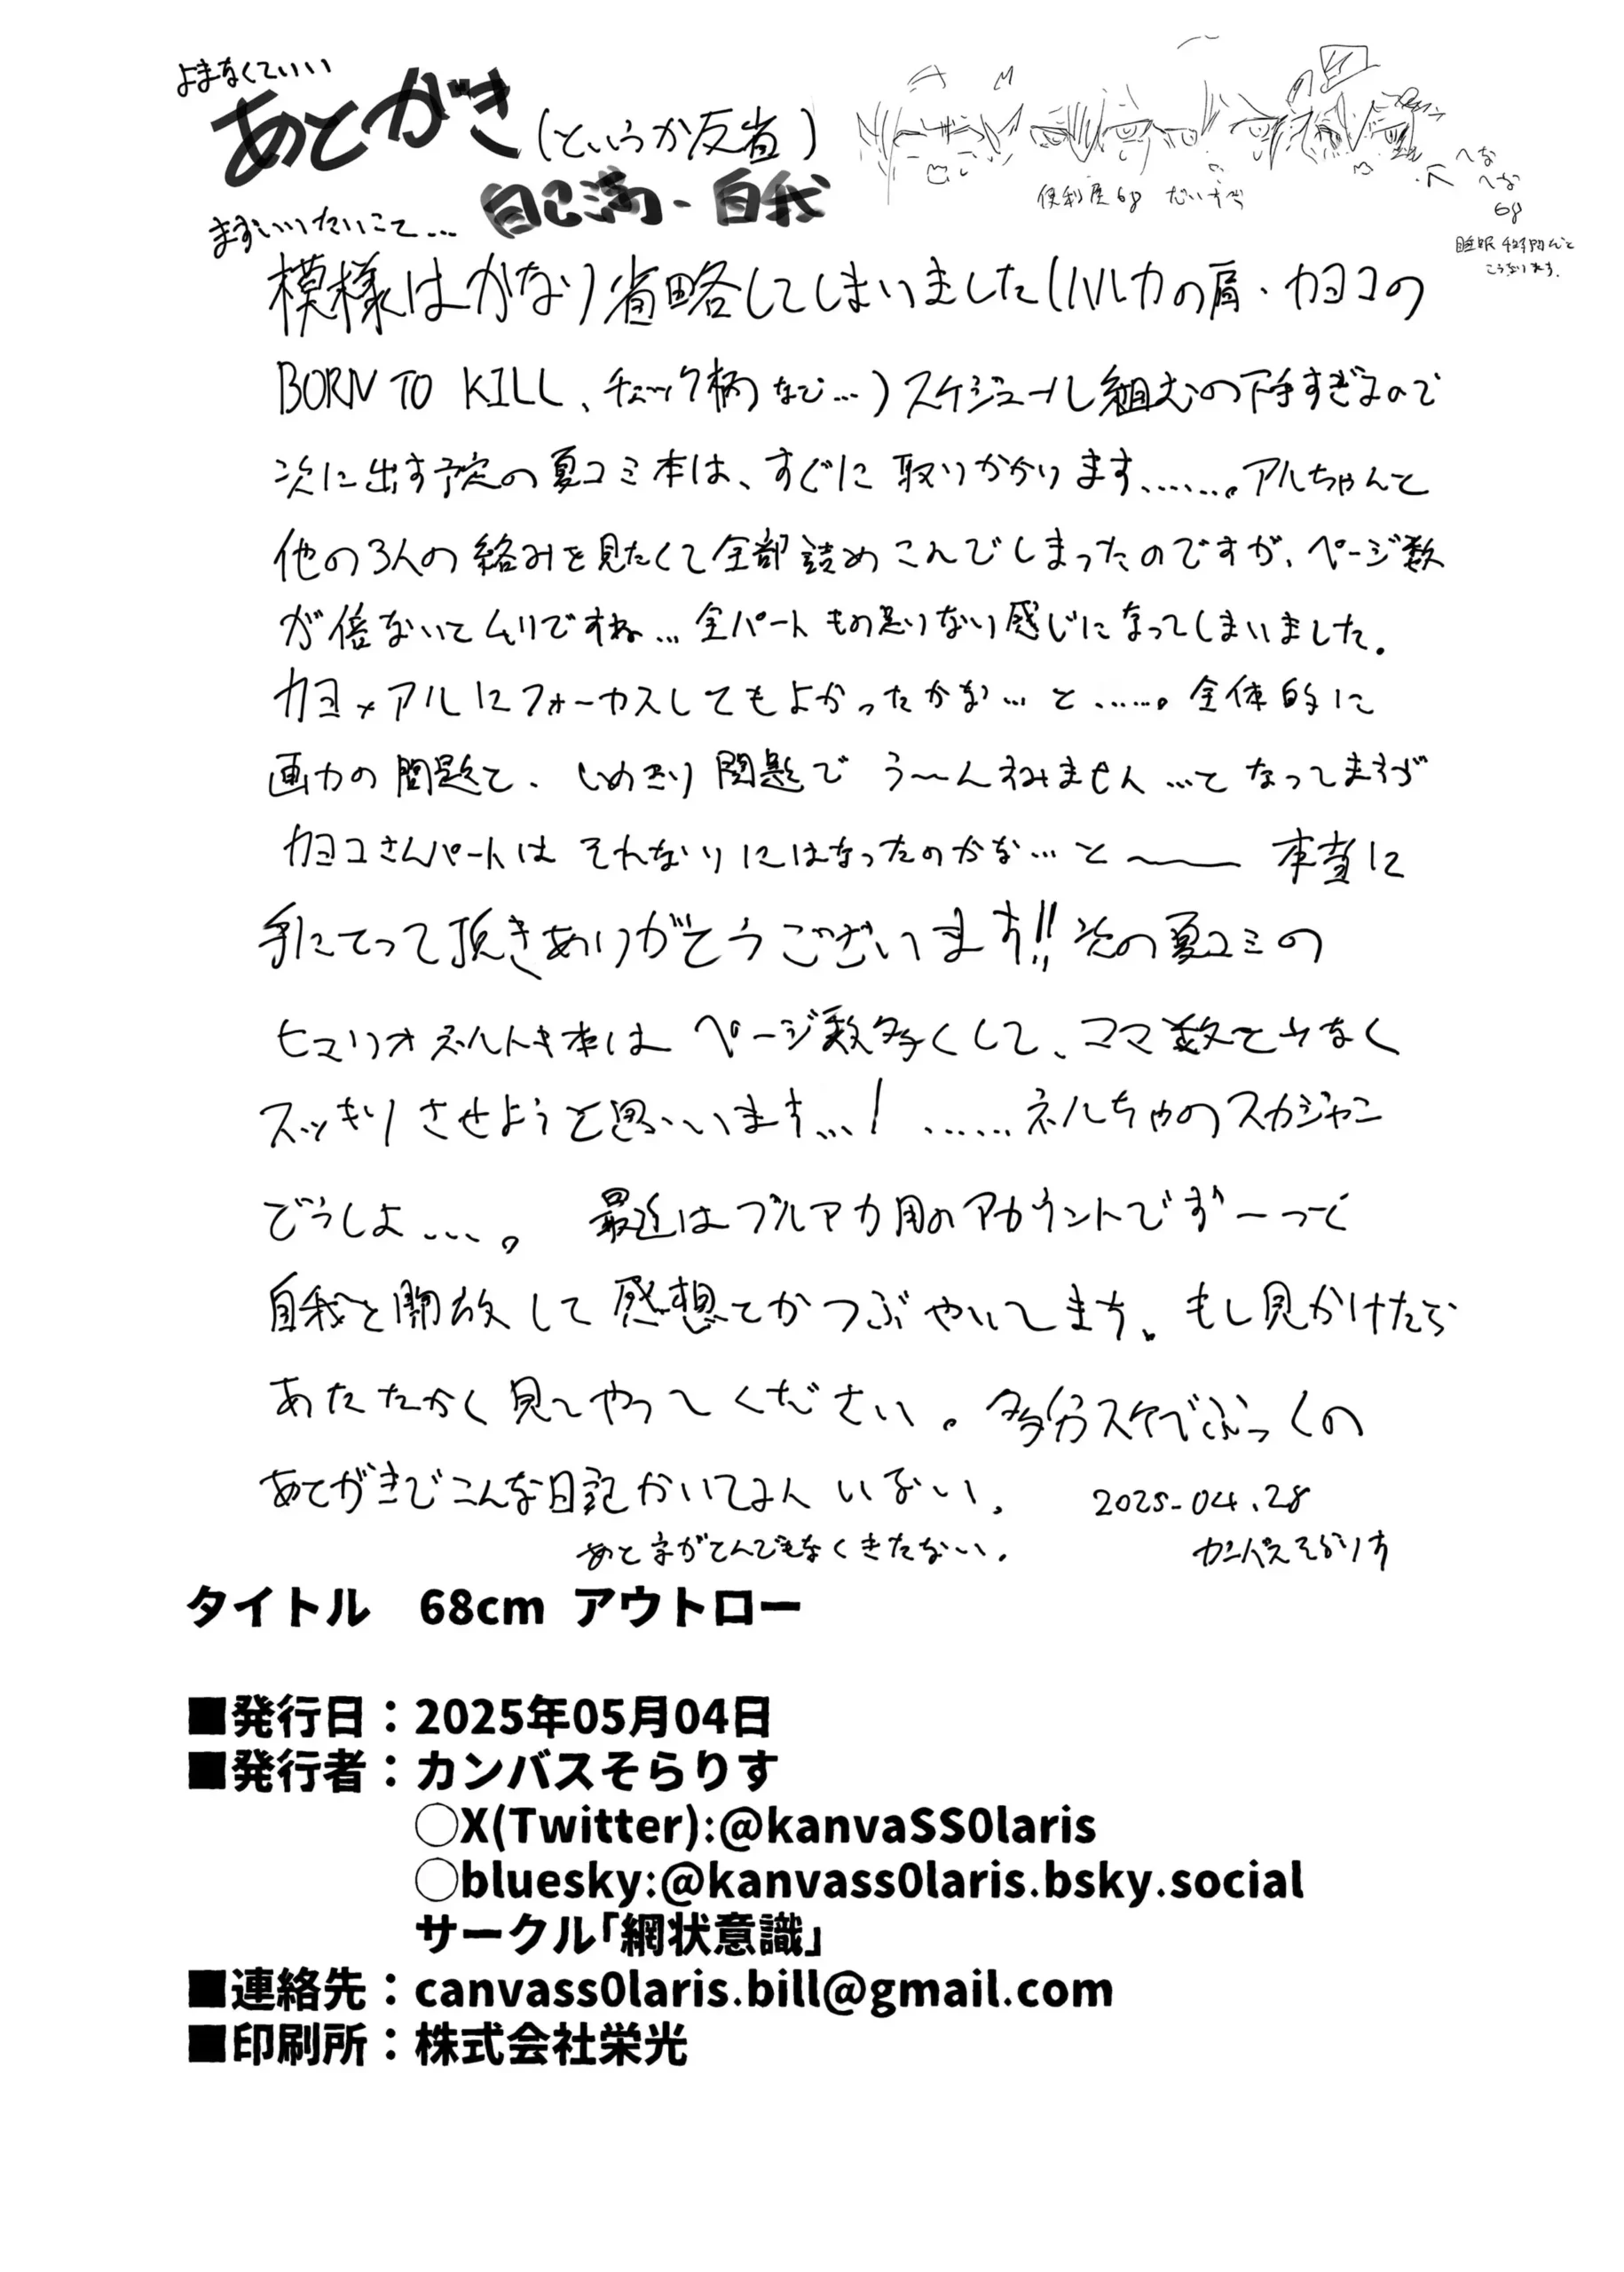 よまなくていい
あとがき(というか反省)
自己満・自我
便利屋68 だいすき
へな
へな
68
睡眠時間んと
こうなります。
まずいいたいこと...
模様はかなり省略してしまいました(ハルカの肩・カヨコの
BORN TO KILL、チェック柄など…)スケジュール組むの下手すぎるので
次に出す予定の夏コミ本は、すぐに取りかかります……。アルちゃんと
他の3人の絡みを見たくて全部詰めこんでしまったのですが、ページ数
が倍ないとムリですね…全パートもの足りない感じになってしまいました。
カヨ×アルにフォーカスしてもよかったかな…と……。全体的に
画力の問題と、しめきり問題でう〜んすみません…となってますが
カヨコさんパートはそれなりにはなったのかな…と〜 本当に
手にとって頂きありがとうございます!!次の夏コミの
ヒマリオネルトキ本はページ数多くして、コマ数を少なく
スッキリさせようと思います…! ……ネルちゃのスカジャン
どうしよ…。 最近はブルアカ用のアカウントでずーっと
自我を開放して感想とかつぶやいてます。もし見かけたら
あたたかく見てやってください。多分スケブぶっくの
あとがきでこんな日記かいてる人いない。
2025-04.28
あと字がとんでもなくきたない。
カンバスそらりす
タイトル 68cm アウトロー
■発行日:2025年05月04日
■発行者:カンバスそらりす
○X(Twitter):@kanvaSS0laris
○bluesky:@kanvass0laris.bsky.social
サークル「網状意識」
■連絡先:canvass0laris.bill@gmail.com
■印刷所:株式会社栄光